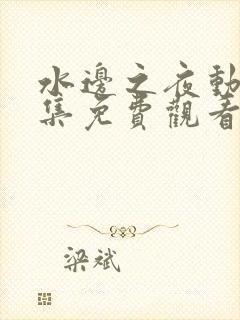 水邊之夜動
集免費觀看
梁斌